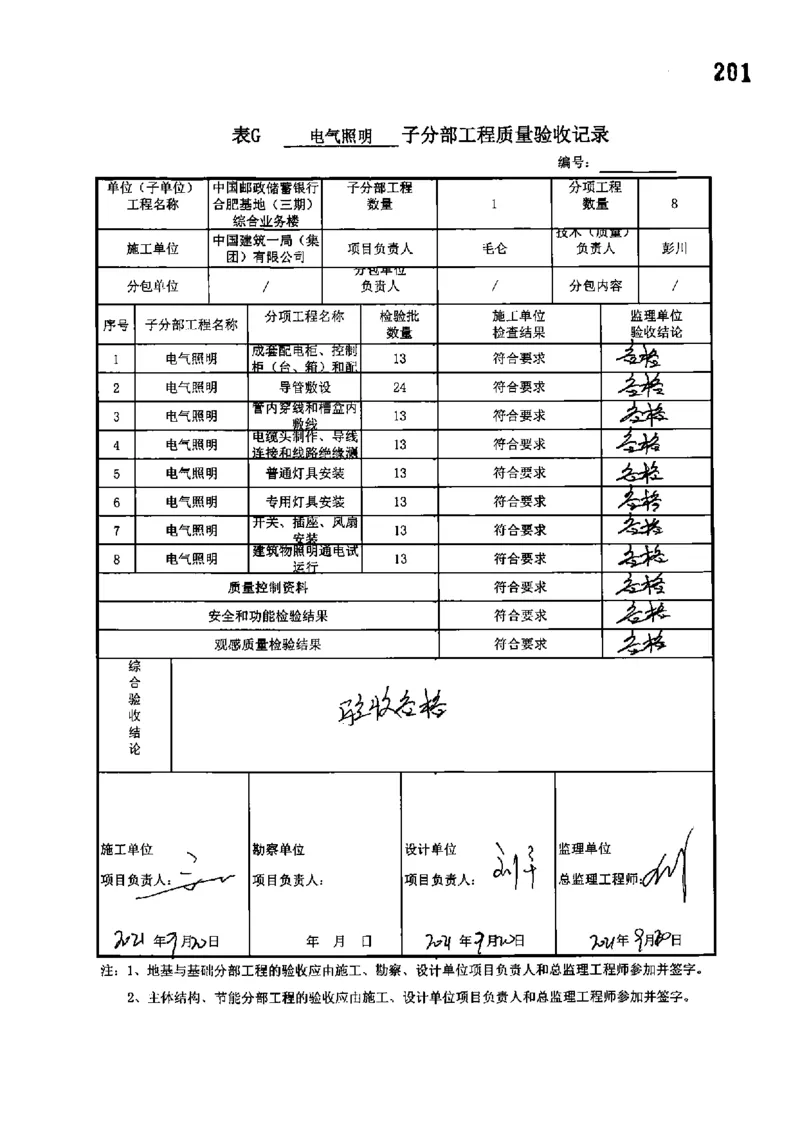 201
表G 电气照明 子分部工程质量验收记录
编号：
单位（子单位）工程名称 中国邮政储蓄银行合肥基地（三期）综合业务楼 子分部工程数量 1 分项工程数量 8
施工单位 中国建筑一局（集团）有限公司 项目负责人 毛仑 技术（质量）负责人 彭川
分包单位 / 分包单位负责人 / 分包内容 /
序号 子分部工程名称 分项工程名称 检验批数量 施工单位检查结果 监理单位验收结论
1 电气照明 成套配电柜、控制柜（台、箱）和配 13 符合要求 合格
2 电气照明 导管敷设 24 符合要求 合格
3 电气照明 管内穿线和槽盒内敷线 13 符合要求 合格
4 电气照明 电缆头制作、导线连接和线路绝缘测 13 符合要求 合格
5 电气照明 普通灯具安装 13 符合要求 合格
6 电气照明 专用灯具安装 13 符合要求 合格
7 电气照明 开关、插座、风扇安装 13 符合要求 合格
8 电气照明 建筑物照明通电试运行 13 符合要求 合格
质量控制资料 符合要求 合格
安全和功能检验结果 符合要求 合格
观感质量检验结果 符合要求 合格
综合验收结论 验收合格
施工单位 勘察单位 设计单位 监理单位
项目负责人： 项目负责人： 项目负责人： 总监理工程师：
2021年9月20日 年 月 日 2021年9月20日 2021年9月20日
注：1、地基与基础分部工程的验收应由施工、勘察、设计单位项目负责人和总监理工程师参加并签字。
2、主体结构、节能分部工程的验收应由施工、设计单位项目负责人和总监理工程师参加并签字。